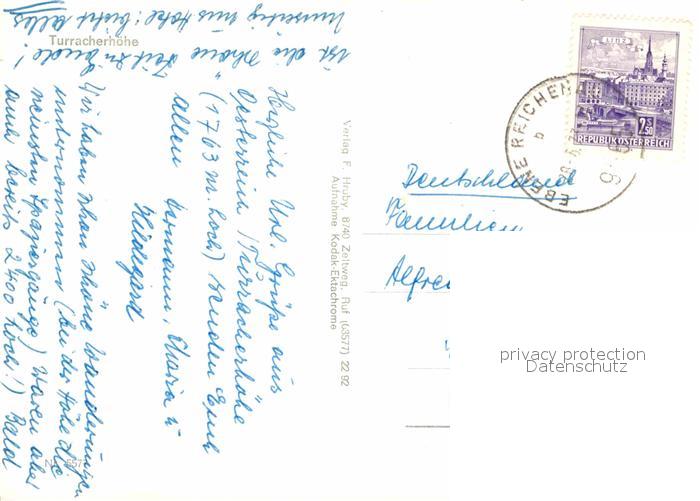 Turracherhöhe
Herzliche Url. Grüße aus
Österreich (Turracherhöhe
(1763 m. hoch) senden Euch
allen Hermann, Maria u.
Hildegard
Wir haben schon schöne Wanderungen
unternommen (bei der Höhe die
meisten Spaziergänge) Waren aber
auch bereits 2400 hoch!) Bald
ist die schöne Zeit zu Ende!
alles
Nr.
Verlag F. Hruby, 8740 Zeltweg, Ruf (03577) 22 92
Aufnahme Kodak-Ektachrome
LINZ
2.50
REPUBLIK ÖSTERREICH
EBENE REICHENAU
b
Deutschland
Familien
Alfred
privacy protection
Datenschutz